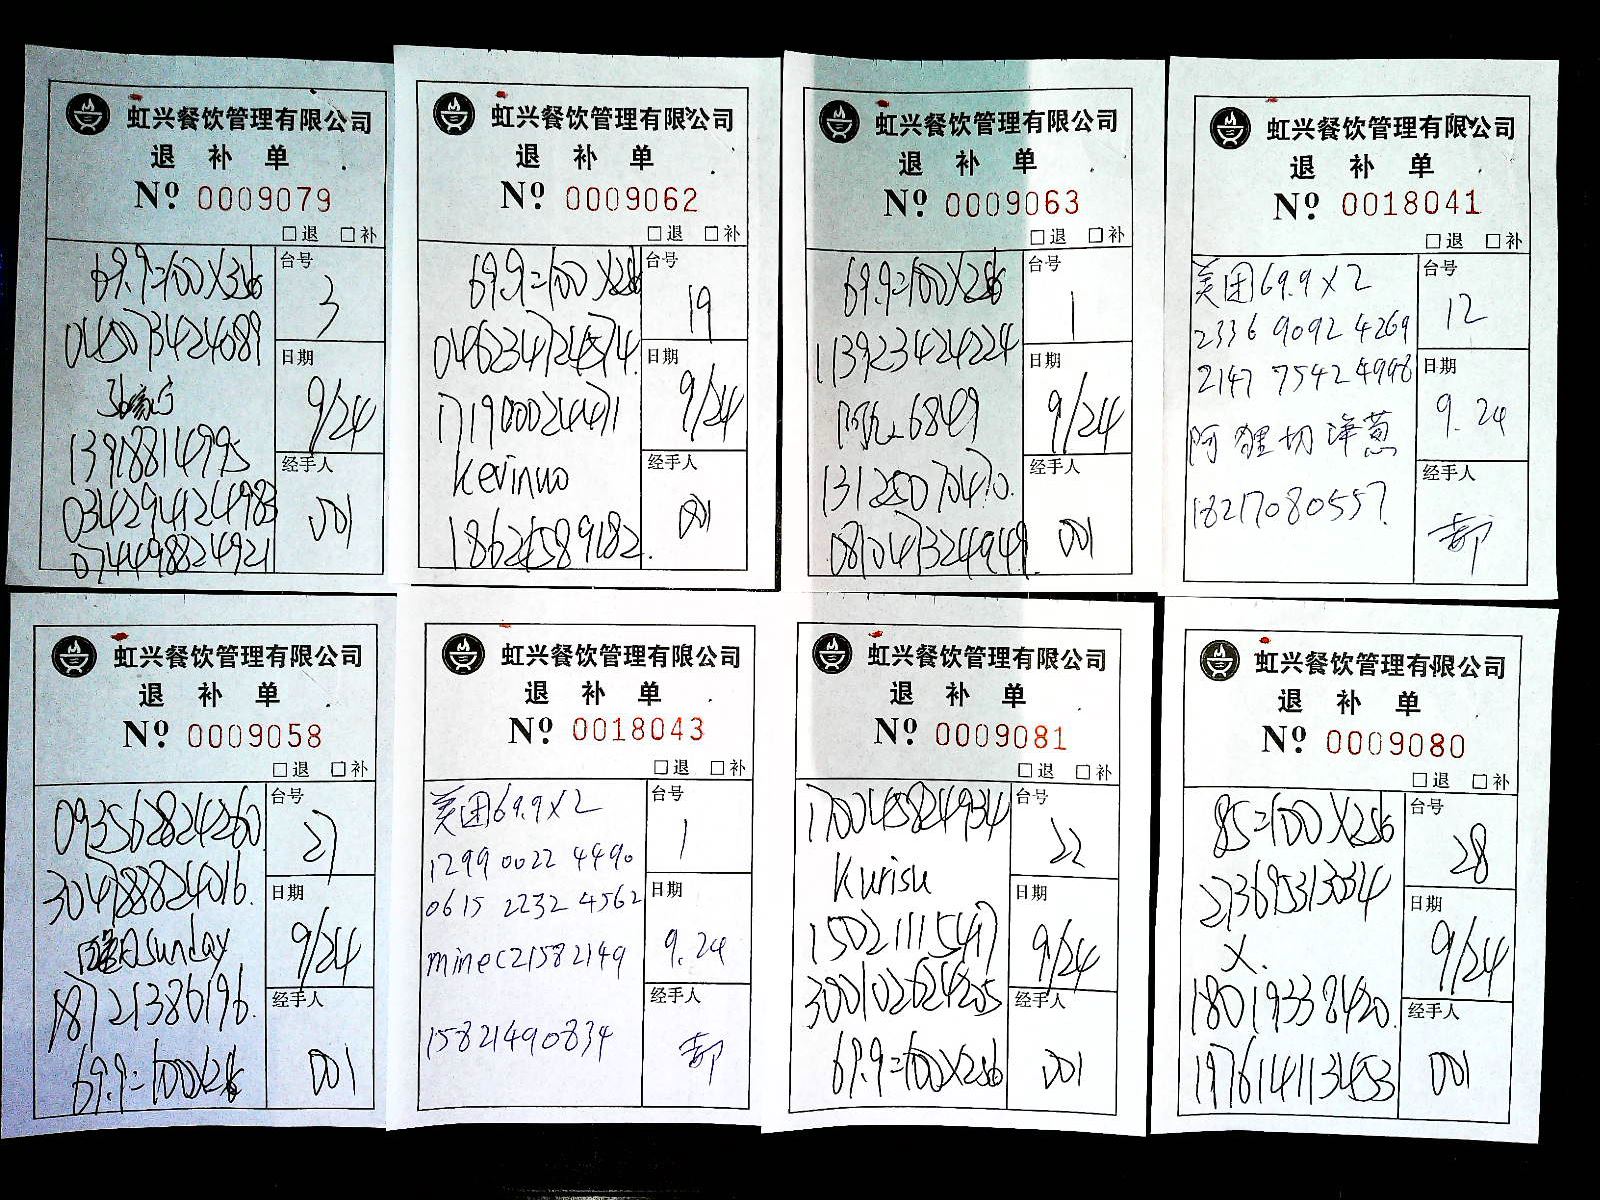 虹兴餐饮管理有限公司
退 补 单
Nº 0009079
□退 □补
69.9=100X3张
台号
3
045073424089
日期
9/24
13918814995
经手人
001
034294124983
074498824921
虹兴餐饮管理有限公司
退 补 单
Nº 0009062
□退 □补
69.9=100X2张
台号
19
0496234724574
日期
9/24
171900024471
Kevinuo
经手人
001
18624589182.
虹兴餐饮管理有限公司
退 补 单
Nº 0009063
□退 □补
69.9=100X2张
台号
1
113923424224
日期
9/24
6849
13125070470.
经手人
001
081047324949.
虹兴餐饮管理有限公司
退 补 单
Nº 0018041
□退 □补
美团69.9X2
台号
12
2336 9092 4269
2147 7542 4996
日期
9.24
阿狸切洋葱
经手人
郝
18217080557.
虹兴餐饮管理有限公司
退 补 单
Nº 0009058
□退 □补
093562824260
台号
27
304788824016.
日期
9/24
日sunday
18721386196.
经手人
001
69.9=100X2张
虹兴餐饮管理有限公司
退 补 单
Nº 0018043
□退 □补
美团69.9X2
台号
1
1299 0022 4490
0615 2232 4562
日期
9.24
minec21582149
经手人
郝
15821490834
虹兴餐饮管理有限公司
退 补 单
Nº 0009081
□退 □补
170045824934
台号
22
Kurisu
日期
9/24
15021115417
300102624205
经手人
001
69.9=100X2张
虹兴餐饮管理有限公司
退 补 单
Nº 0009080
□退 □补
85=100X2张
台号
28
273695313034
日期
9/24
X.
18019338420.
经手人
001
197614113453